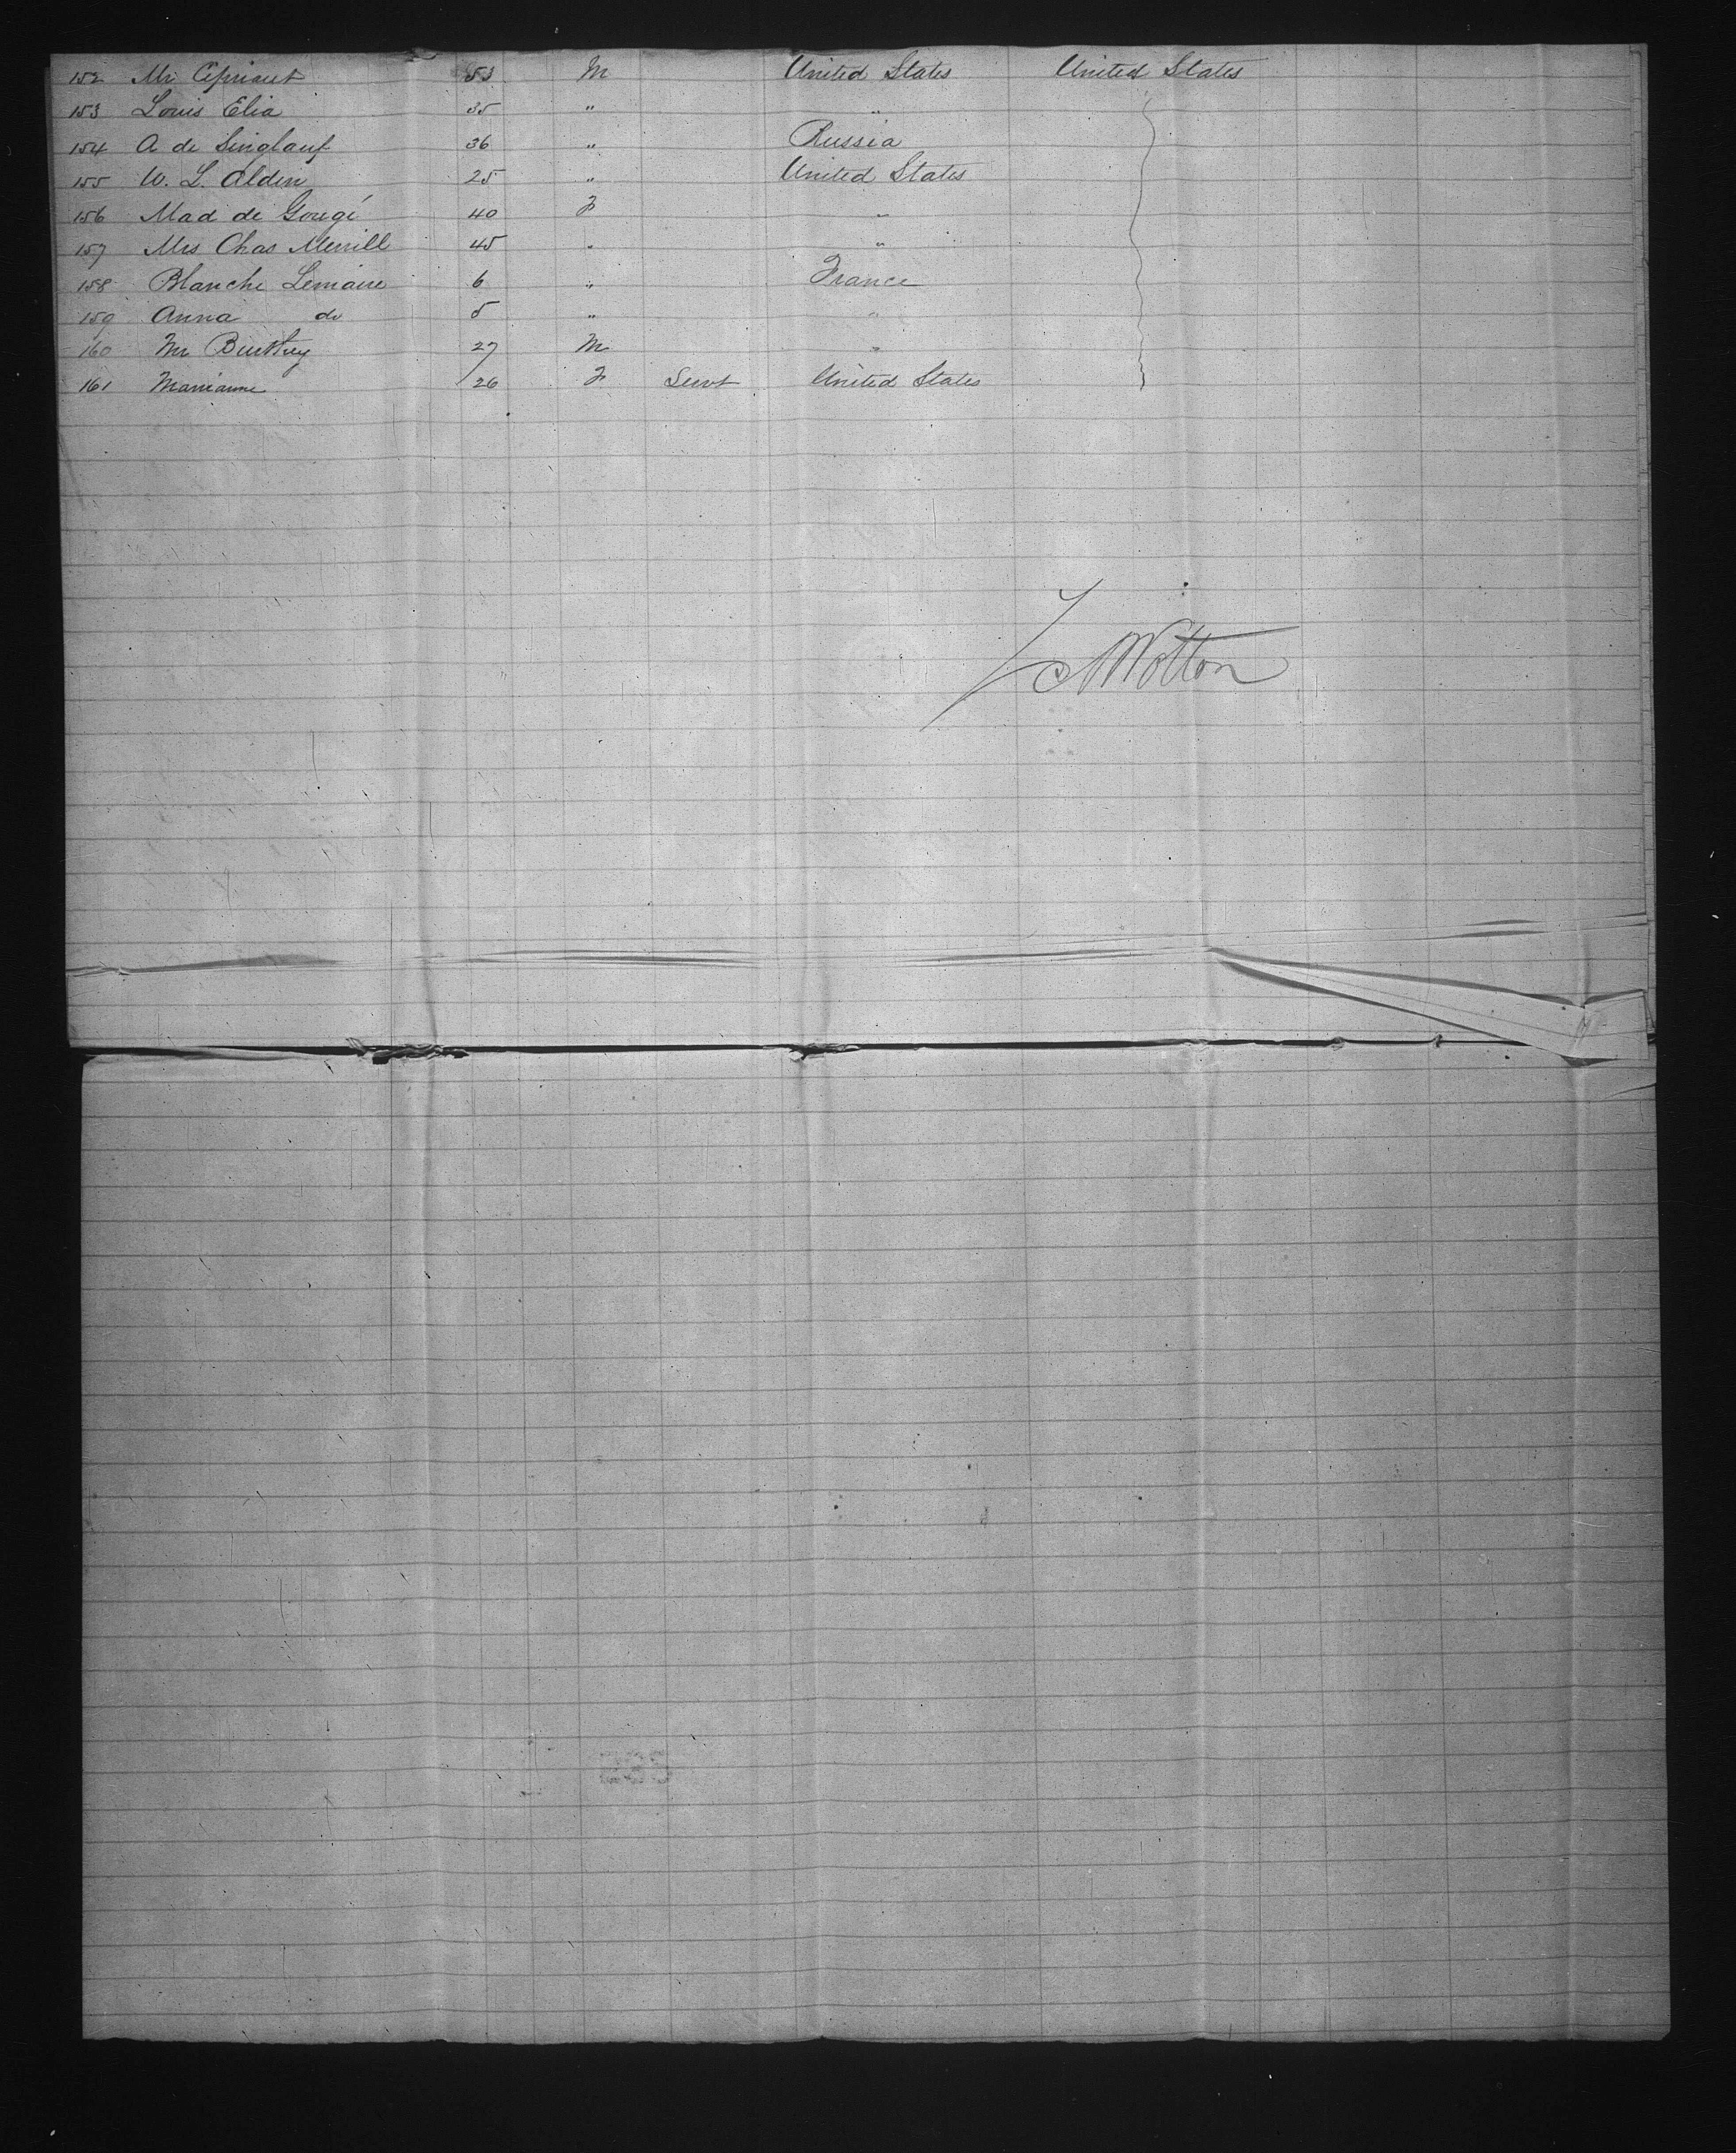 152 Mr Cipriant 53 M United States United States
153 Louis Elia 35 " "
154 A de Singlauf 36 " Russia
155 W. L. Alden 25 " United States
156 Mad de Gougé 40 F "
157 Mrs Chas Merrill 45 " "
158 Blanche Lemaire 6 " France
159 Anna do 5 " "
160 Mr 27 M "
161 Marianne 26 F Servt United States
Wotton